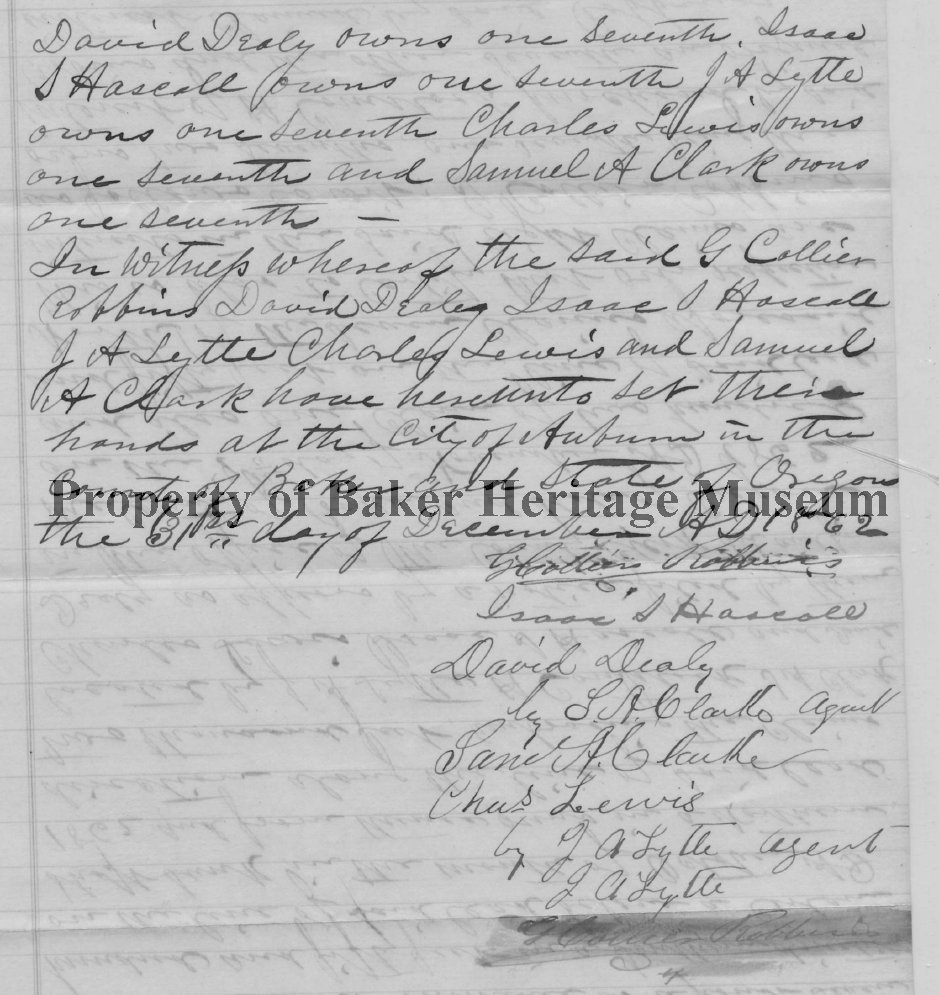 David Dealy owns one seventh. Isaac
S Hascall owns one seventh J A Lytte
owns one seventh Charles Lewis owns
one seventh and Samuel A Clark owns
one seventh —
In Witness whereof the said G Collier
Robbins David Dealey Isaac S Hascall
J A Lytte Charles Lewis and Samuel
A Clark have hereunto set their
hands at the City of Auburn in the
County of Baker and State of Oregon
Property of Baker Heritage Museum
the 31st day of December A D 1862
G Collier Robbins
Isaac S Hascall
David Dealy
by S. A. Clarke agent
Saml A. Clarke
Chas Lewis
by J A Lytte agent
J A Lytte
G Collier Robbins